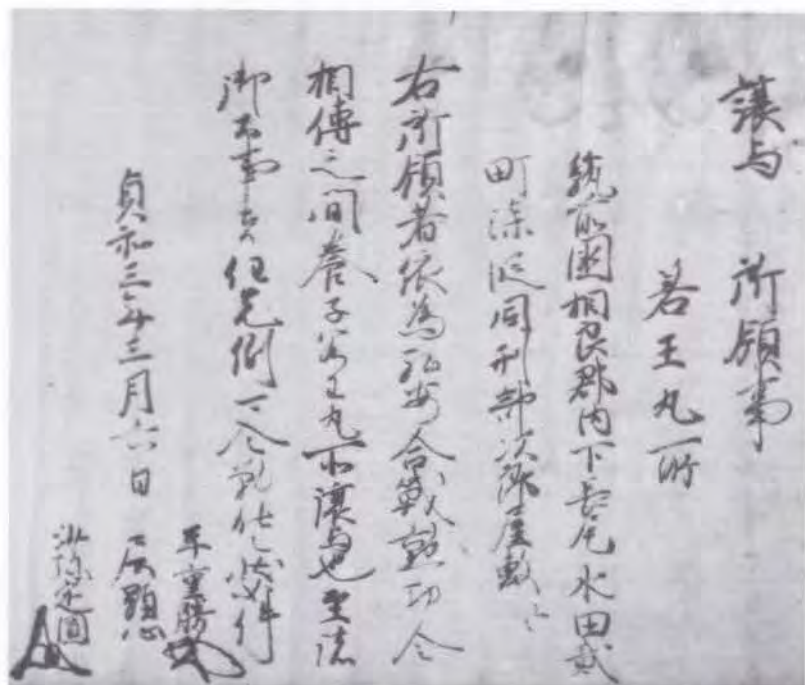 譲与　所領事
若王丸所
筑前国相良郡内下長尾水田貳
町柒段同刑部次郎屋敷々
右所領者依為弘安合戦勲功令
相傳之間養子若王丸所譲与也至諸
御公事者任先例可令勤仕之状如件
貞和三年三月六日
平重勝
沙弥定円